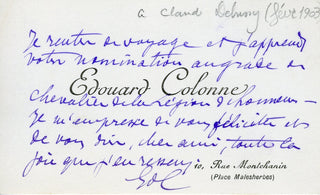 a Claude Debussy (févr 1903
Je rentre de voyage et j'apprends
votre nomination au grade de
Edouard Colonne
chevalier de la Légion d'honneur –
Je m'empresse de vous féliciter et
de vous dire, cher ami, toute la
joie que j'en ressens
10, Rue Montchanin
(Place Malesherbes)
EdC